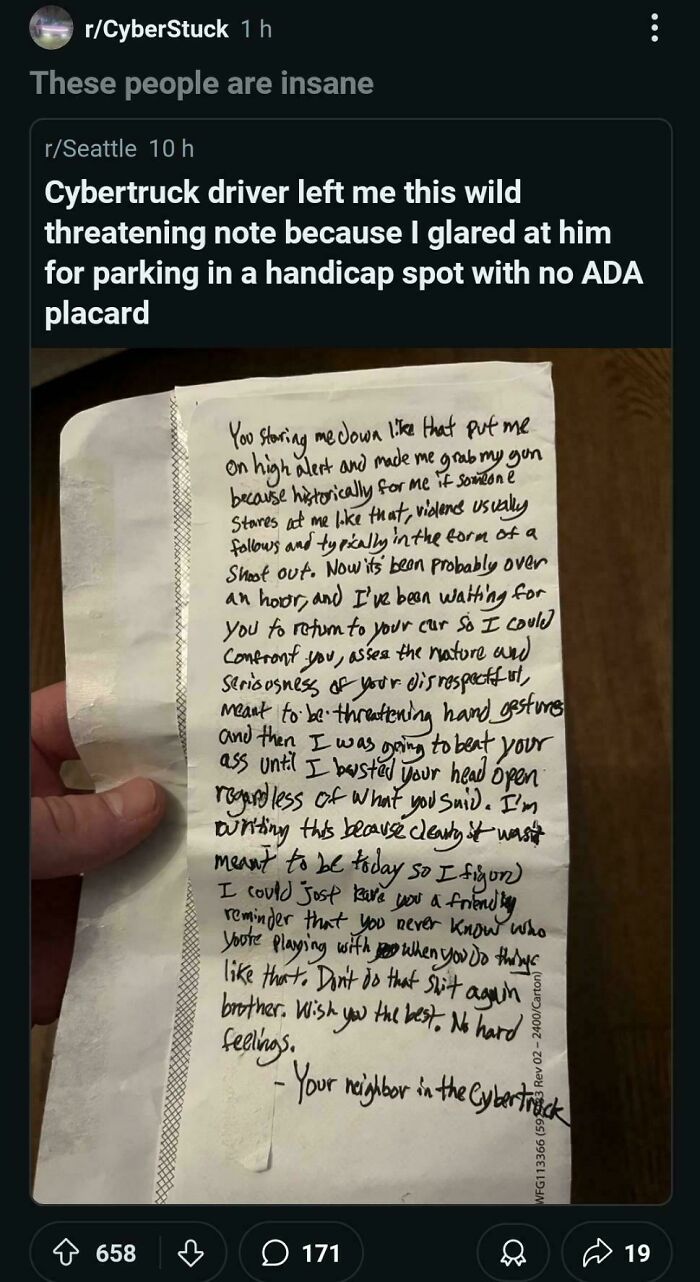 r/CyberStuck 1 h
These people are insane
r/Seattle 10 h
Cybertruck driver left me this wild
threatening note because I glared at him
for parking in a handicap spot with no ADA
placard
You staring me down like that put me
on high alert and made me grab my gun
because historically for me if someone
stares at me like that, violence usually
follows and typically in the form of a
shoot out. Now its been probably over
an hour, and I've been waiting for
you to return to your car so I could
confront you, asses the nature and
seriousness of your disrespectful,
meant to be threatening hand gestures
and then I was going to beat your
ass until I busted your head open
regardless of what you said. I'm
writing this because clearly it wasn't
meant to be today so I figured
I could just leave you a friendly
reminder that you never know who
you're playing with when you do things
like that. Don't do that shit again
brother. Wish you the best. No hard
feelings.
- Your neighbor in the Cybertruck
Rev 02 – 2400/Carton)
658
171
19